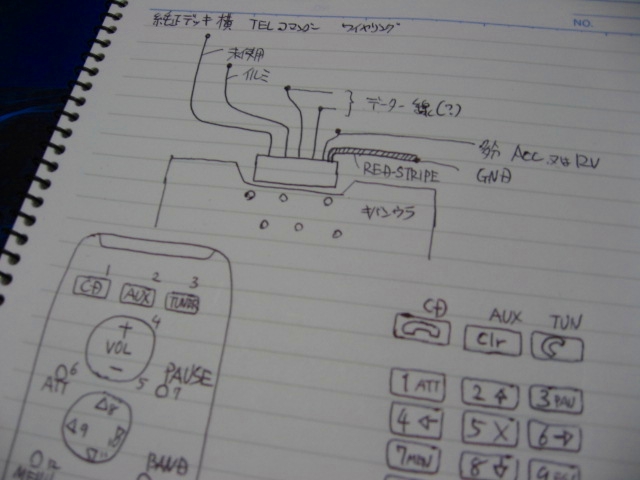 純正デッキ横 TELコマンダー ワイヤリング
NO.
未使用
イルミ
データー線(?)
多分 ACC 又は 12V
RED-STRIPE
GND
キバンウラ
1 2 3
CD AUX TUNER
+ 4
VOL
- 5
6 PAUSE
ATT 7
8
9
11
12 BAND
MENU
CD AUX TUN
Clr
1 ATT 2 3 PAU
4 ← 5 X 6 →
7 MEN 8